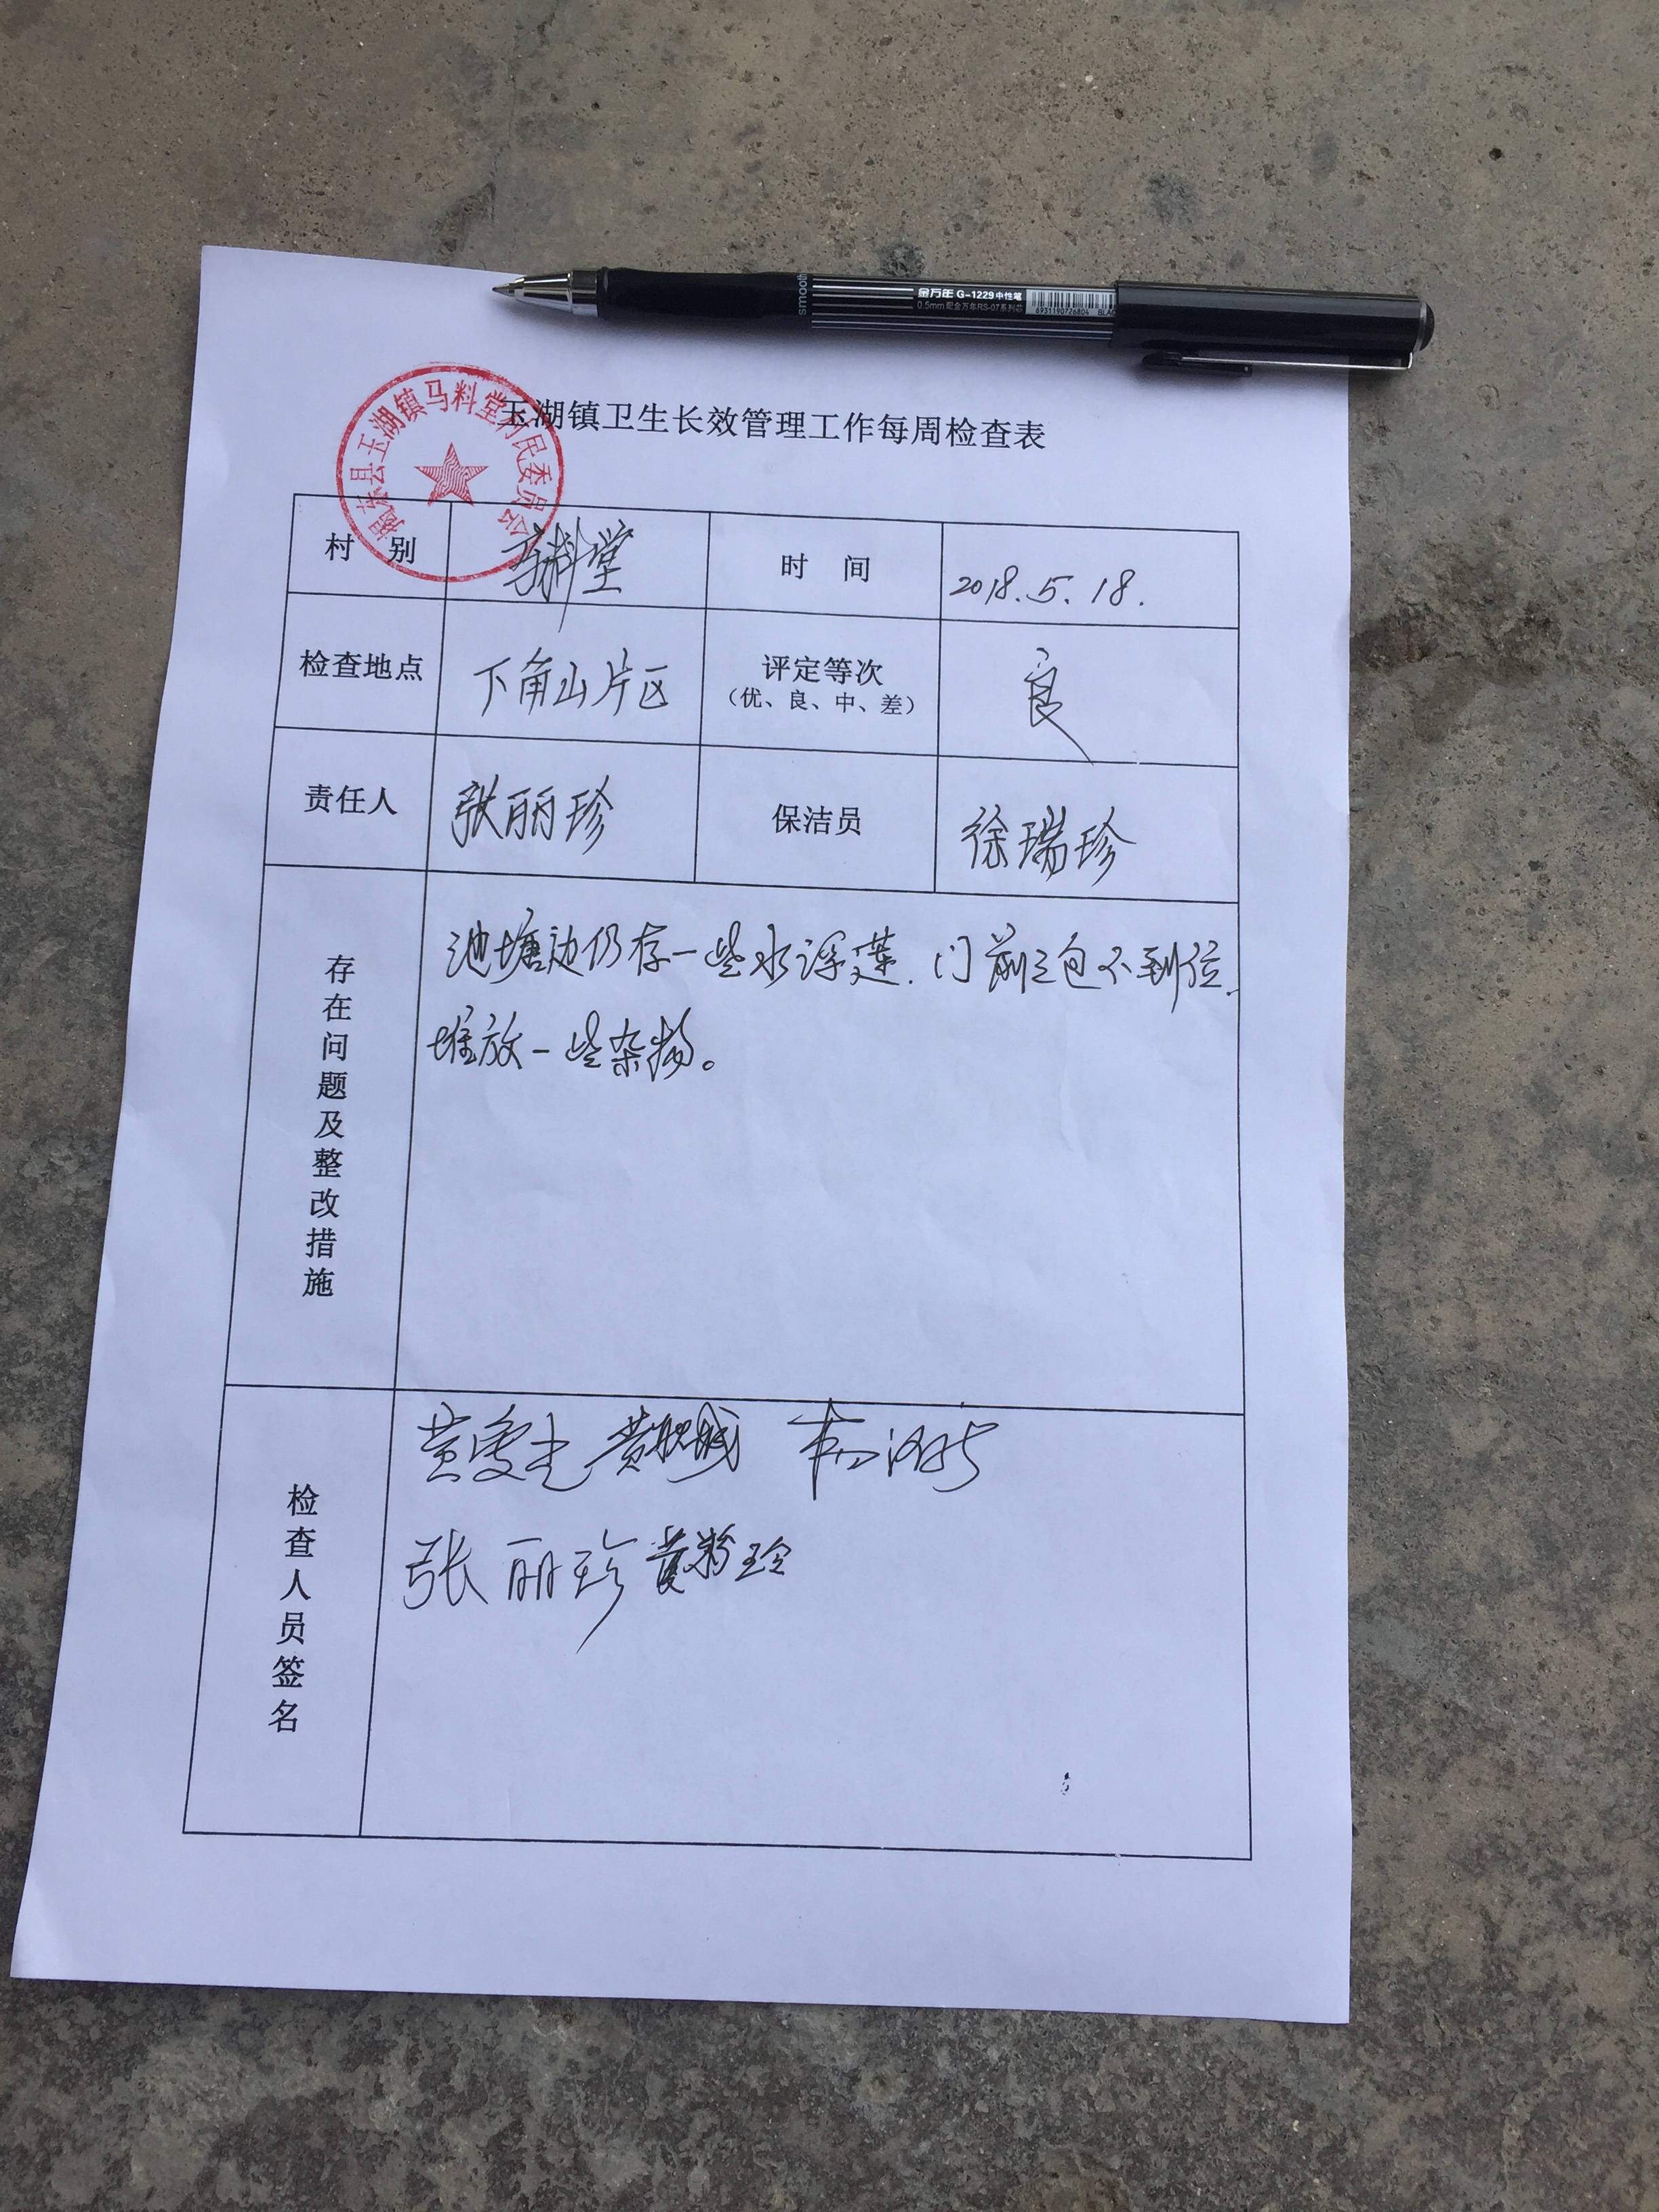 smooth
金万年 G-1229 中性笔
0.5mm 配金万年RS-07系列芯
6931190726804 BLAC
揭东县玉湖镇马料堂村民委员会
玉湖镇卫生长效管理工作每周检查表
村 别 马料堂 时 间 2018.5.18.
检查地点 下角山片区 评定等次 良
（优、良、中、差）
责任人 张丽珍 保洁员 徐瑞珍
存在问题及整改措施
池塘边仍存一些水浮莲.门前三包不到位.
堆放一些杂物。
检查人员签名
张丽珍 黄粉玲